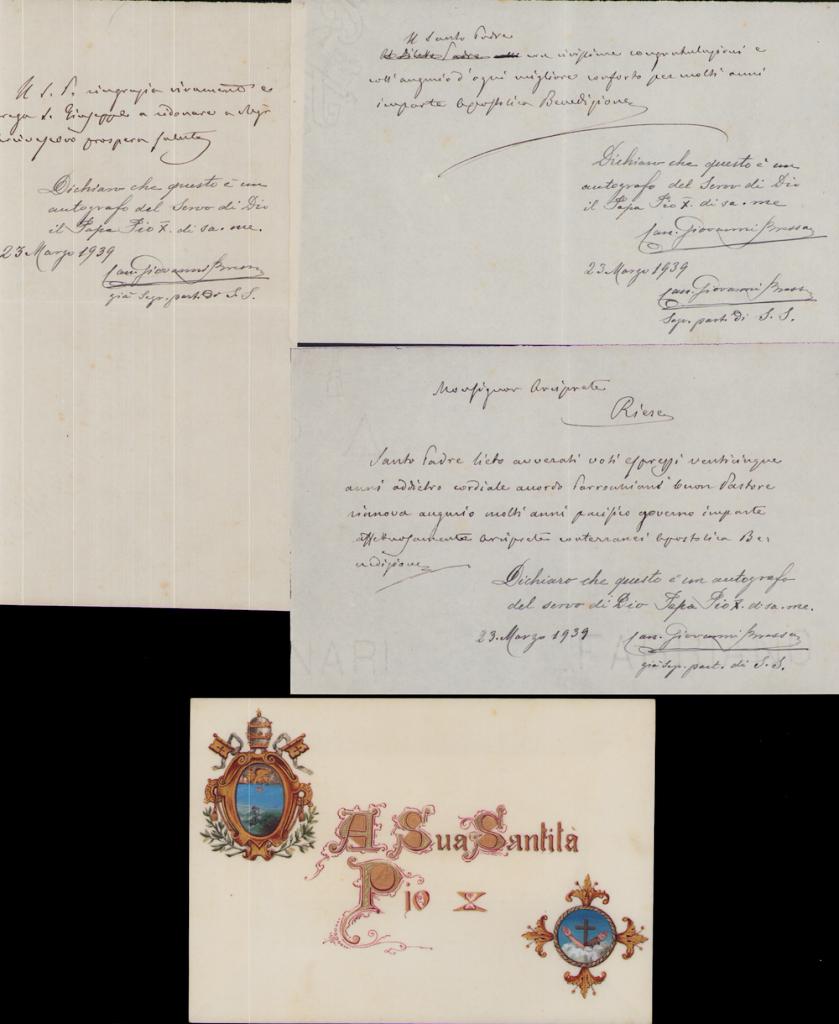 Il S. P. ringrazia vivamente e
prega S. Giuseppe a ridonare a Mgr
Arcivescovo prospera salute
Dichiaro che questo è un
autografo del Servo di Dio
il Papa Pio X. di sa. me.
23 Marzo 1939
Can. Giovanni Bressan
già Segr. part. di S. S.
Il Santo Padre
con vivissime congratulazioni e
coll'augurio d'ogni migliore conforto per molti anni
imparte Apostolica Benedizione
Dichiaro che questo è un
autografo del Servo di Dio
il Papa Pio X. di sa. me
Can. Giovanni Bressan
23 Marzo 1939
Can. Giovanni Bressan
Segr. part. di S. S.
Monsignor Arciprete
Riese
Santo Padre lieto avverati voti espressi venticinque
anni addietro cordiale accordo Parrocchiani buon Pastore
rinnova augurio molti anni pacifico governo imparte
affettuosamente Arciprete conterranei Apostolica Be-
nedizione
Dichiaro che questo è un autografo
del servo di Dio Papa Pio X. di sa. me.
23 Marzo 1939 Can. Giovanni Bressan
già Segr. part. di S. S.
A Sua Santità
Pio X